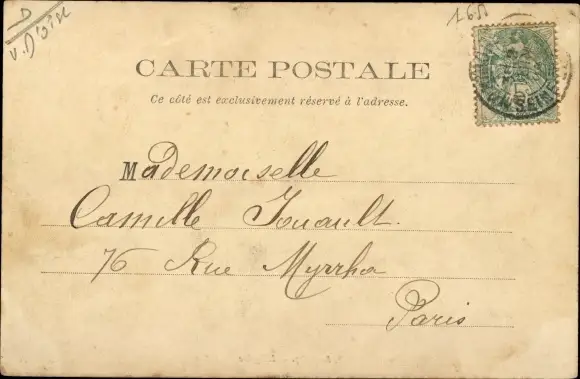 D
V. D'OISE
CARTE POSTALE
Ce côté est exclusivement réservé à l'adresse.
Mademoiselle
Camille Jouault.
76 Rue Myrrha
Paris
SEINE